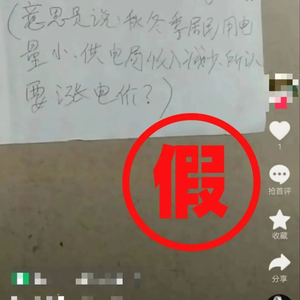 (意思是说:秋冬季居民用电
量小、供电局收入减少.所以
要涨电价?)
假
1
抢首评
收藏
分享